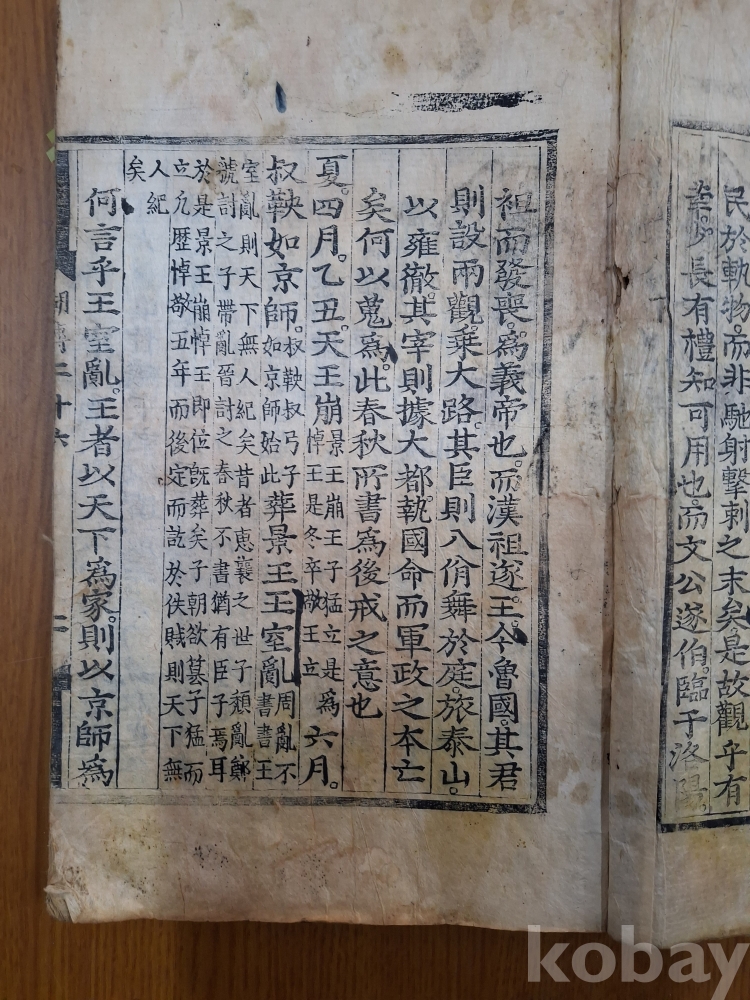 民於軌物。而非馳射擊刺之末矣是故觀乎有
莘。少長有禮知可用也。而文公遂伯。臨于洛陽。
祖而發喪。爲義帝也。而漢祖遂王。今魯國。其君
則設兩觀。乗大路。其臣則八佾舞於庭。旅泰山。
以雍徹。其宰則據大都。執國命。而軍政之本亡
矣何以蒐爲。此春秋所書爲後戒之意也
夏。四月。乙丑。天王崩景王崩王子猛立是爲悼王是冬卒敬王立六月。
叔鞅如京師。叔鞅叔弓子如京師始此葬景王王室亂周亂不書書王
室亂則天下無人紀矣昔者惠襄之世子頹亂鄭
虢討之子帶亂晉討之春秋不書猶有臣子焉耳
於是景王崩悼王即位旣葬矣子朝欲簒子猛而
立凢歷悼敬五年而後定而訖於佚賊則天下無
人紀
矣
何言乎王室亂。王者以天下爲家。則以京師爲
二十六
二
kobay